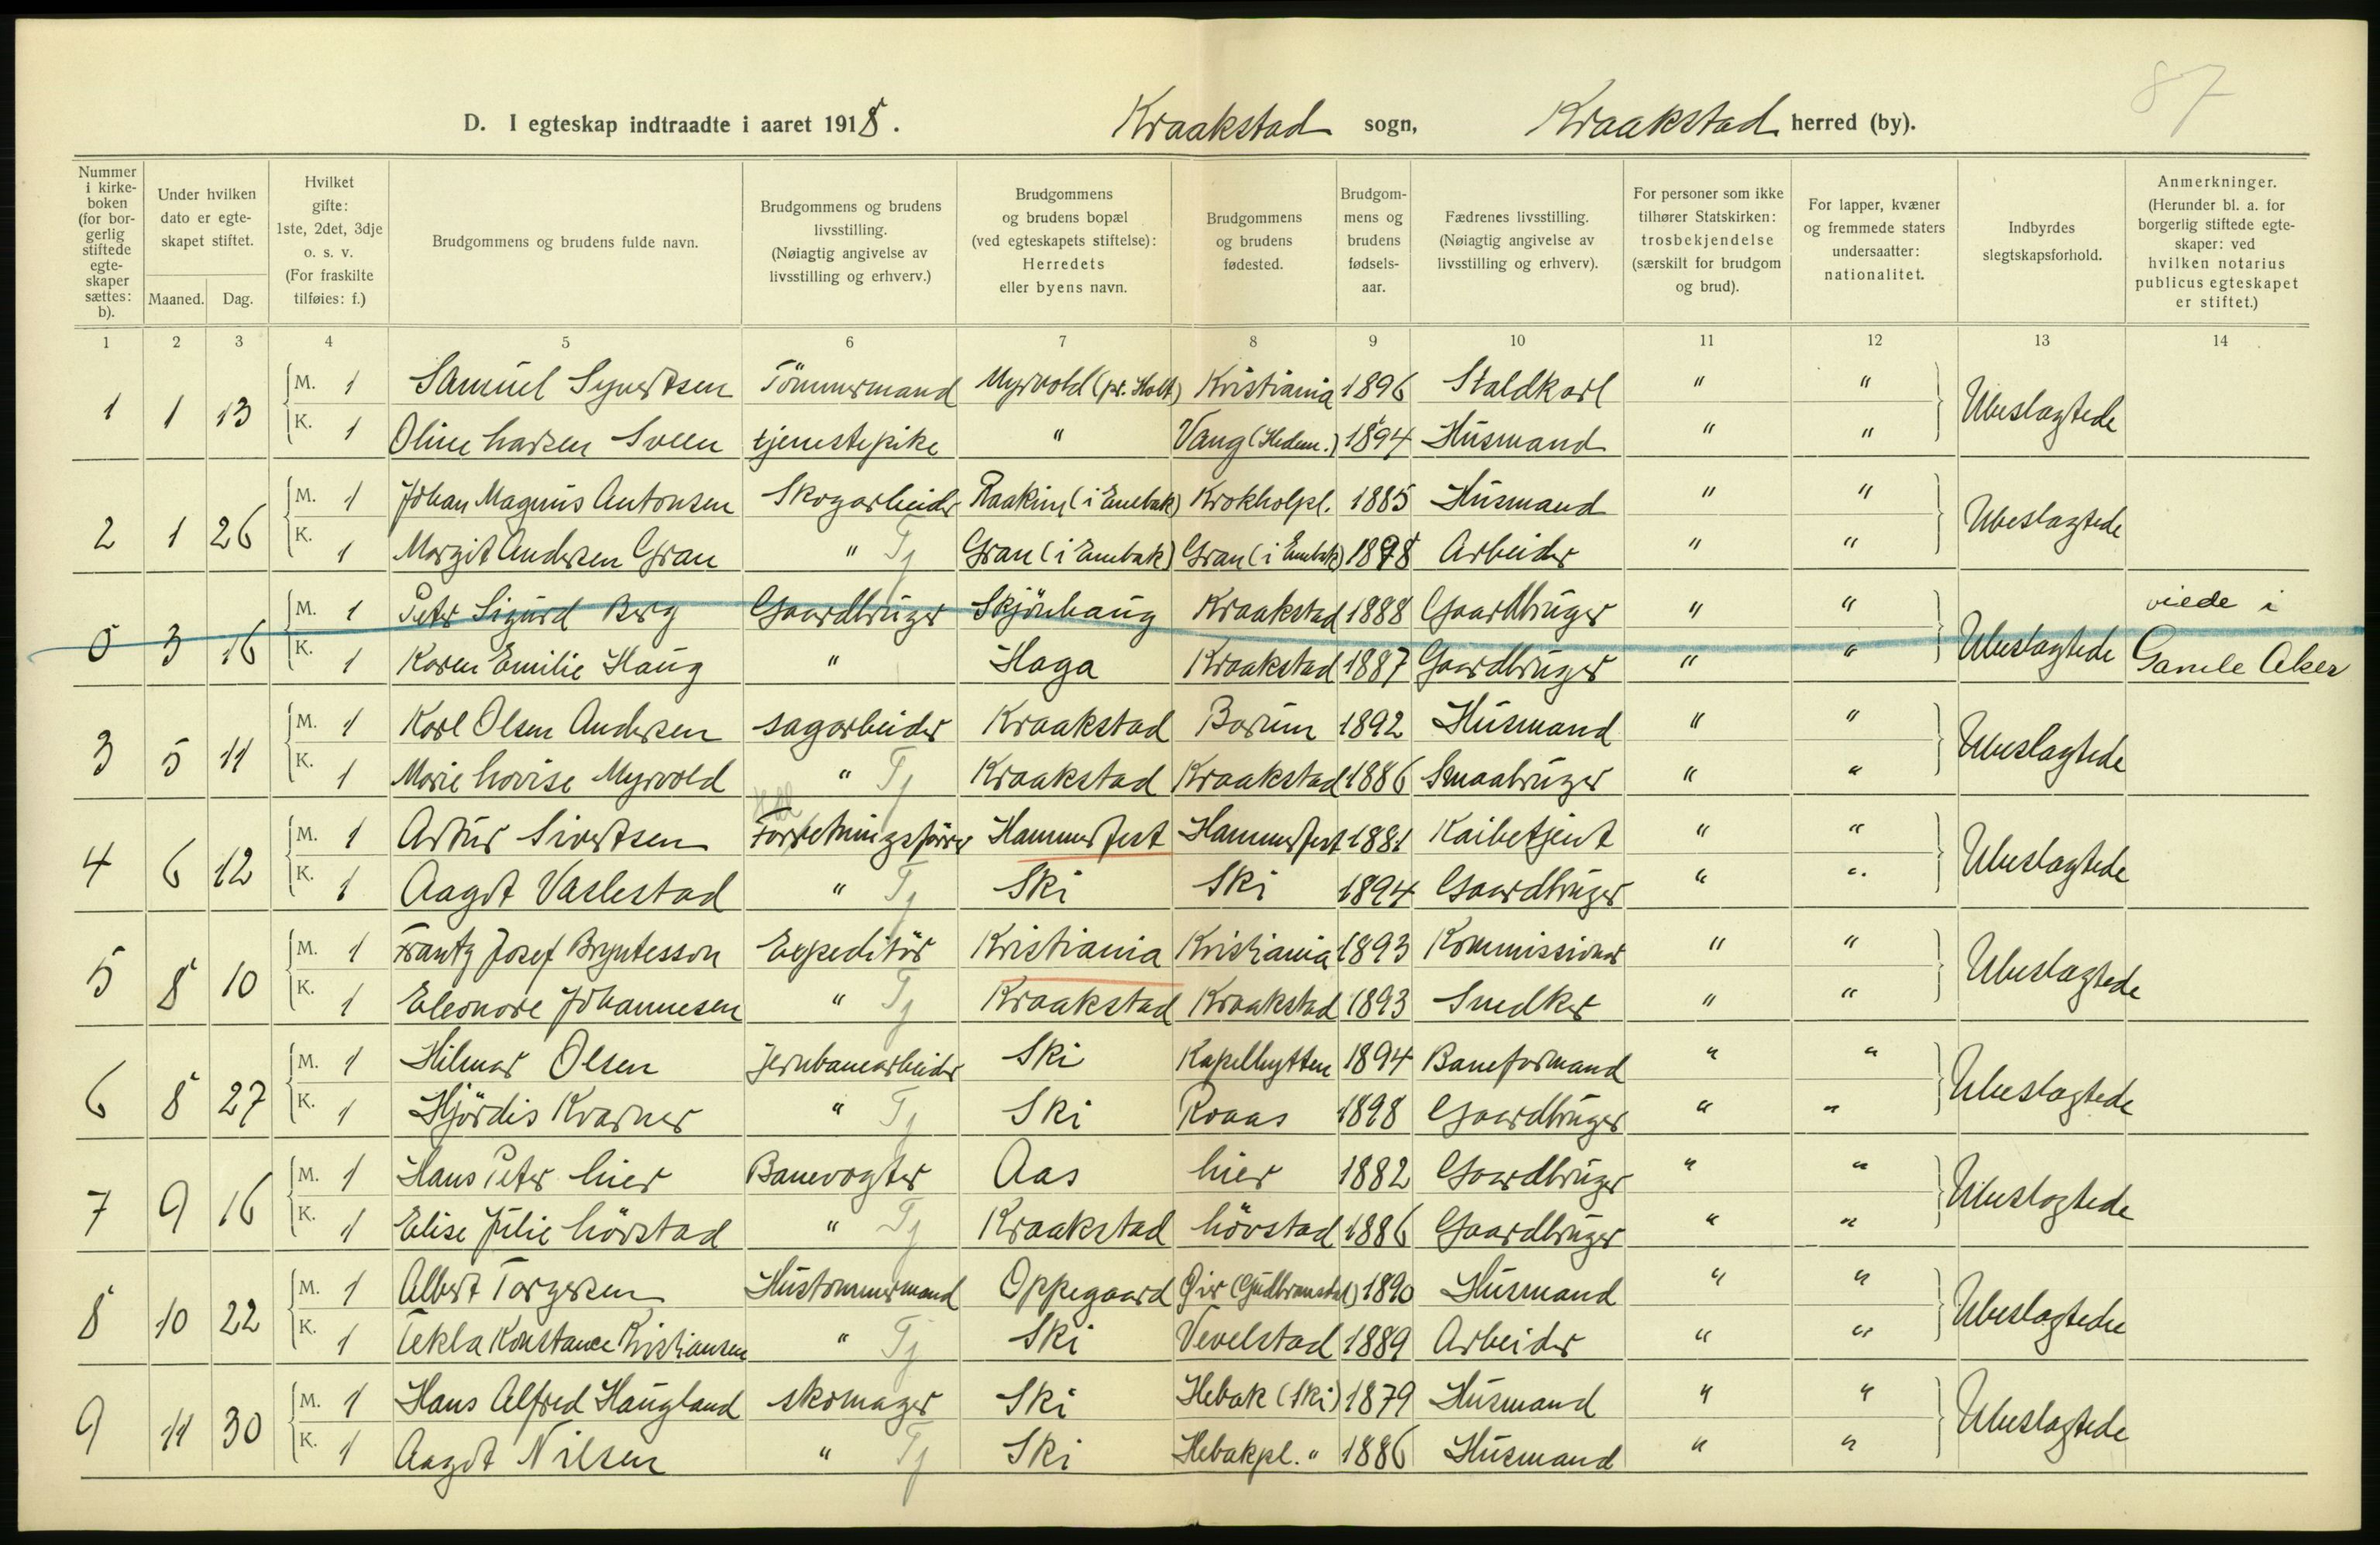 87
D. I egteskap indtraadte i aaret 1918. Kraakstad sogn, Kraakstad herred (by).
Nummer i kirkeboken (for borgerlig stiftede egteskaper sættes: b).
Under hvilken dato er egteskapet stiftet.
Maaned. Dag.
Hvilket gifte: 1ste, 2det, 3dje o. s. v. (For fraskilte tilføies: f.)
Brudgommens og brudens fulde navn.
Brudgommens og brudens livsstilling. (Nøiagtig angivelse av livsstilling og erhverv.)
Brudgommens og brudens bopæl (ved egteskapets stiftelse): Herredets eller byens navn.
Brudgommens og brudens fødested.
Brudgommens og brudens fødselsaar.
Fædrenes livsstilling. (Nøiagtig angivelse av livsstilling og erhverv).
For personer som ikke tilhører Statskirken: trosbekjendelse (særskilt for brudgom og brud).
For lapper, kvæner og fremmede staters undersaatter: nationalitet.
Indbyrdes slegtskapsforhold.
Anmerkninger. (Herunder bl. a. for borgerlig stiftede egteskaper: ved hvilken notarius publicus egteskapet er stiftet.)
1 2 3 4 5 6 7 8 9 10 11 12 13 14
1 1 13 M. 1 Samuel Syvertsen Tömmermand Myrvold (pr. Holt) Kristiania 1896 Staldkarl " " Ubeslagtede
K. 1 Oline Larsen Sveen tjenestepike " Vang (Hedem.) 1894 Husmand " "
2 1 26 M. 1 Johan Magnus Antonsen Skogarbeider Raakind (i Enebak) Krokholpl. 1885 Husmand " " Ubeslagtede
K. 1 Margit Andersen Gran " Tj Gran (i Enebak) Gran (i Enebak) 1898 Arbeider " "
0 3 16 M. 1 Peter Sigurd Berg Gaardbruger Skjönhaug Kraakstad 1888 Gaardbruger " " Ubeslagtede viede i
K. 1 Karen Emilie Haug " Haga Kraakstad 1887 Gaardbruger " " Gamle Aker
3 5 11 M. 1 Karl Olsen Andersen sagarbeider Kraakstad Barum 1892 Husmand " " Ubeslagtede
K. 1 Marie Lovise Myrvold " Tj Kraakstad Kraakstad 1886 Smaabruger " "
4 6 12 M. 1 Artur Sivertsen Forretningsförer Hammerfest Hammerfest 1881 Kaibetjent " " Ubeslagtede
K. 1 Aagot Vaslestad " Tj Ski Ski 1894 Gaardbruger " "
5 8 10 M. 1 Frantz Josef Bryntesson Expeditör Kristiania Kristiania 1893 Kommissionær " " Ubeslagtede
K. 1 Eleonore Johannesen " Tj Kraakstad Kraakstad 1893 Snedker " "
6 8 27 M. 1 Hilmar Olsen Jernbanearbeider Ski Kapelhytten 1894 Baneformand " " Ubeslagtede
K. 1 Hjördis Kvarner " Tj Ski Roaas 1898 Gaardbruger " "
7 9 16 M. 1 Hans Peter Lier Banevogter Aas Lier 1882 Gaardbruger " " Ubeslagtede
K. 1 Elise Julie Lövstad " Tj Kraakstad Lövstad 1886 Gaardbruger " "
8 10 22 M. 1 Albert Torgersen Hustømmermand Oppegaard Øier (Gudbransdal) 1890 Husmand " " Ubeslagtede
K. 1 Tekla Konstance Kristiansen " Tj Ski Vevelstad 1889 Arbeider " "
9 11 30 M. 1 Hans Alfred Haugland skomager Ski Hebak (Ski) 1879 Husmand " " Ubeslagtede
K. 1 Aagot Nilsen " Tj Ski Hebakpl. " 1886 Husmand " "